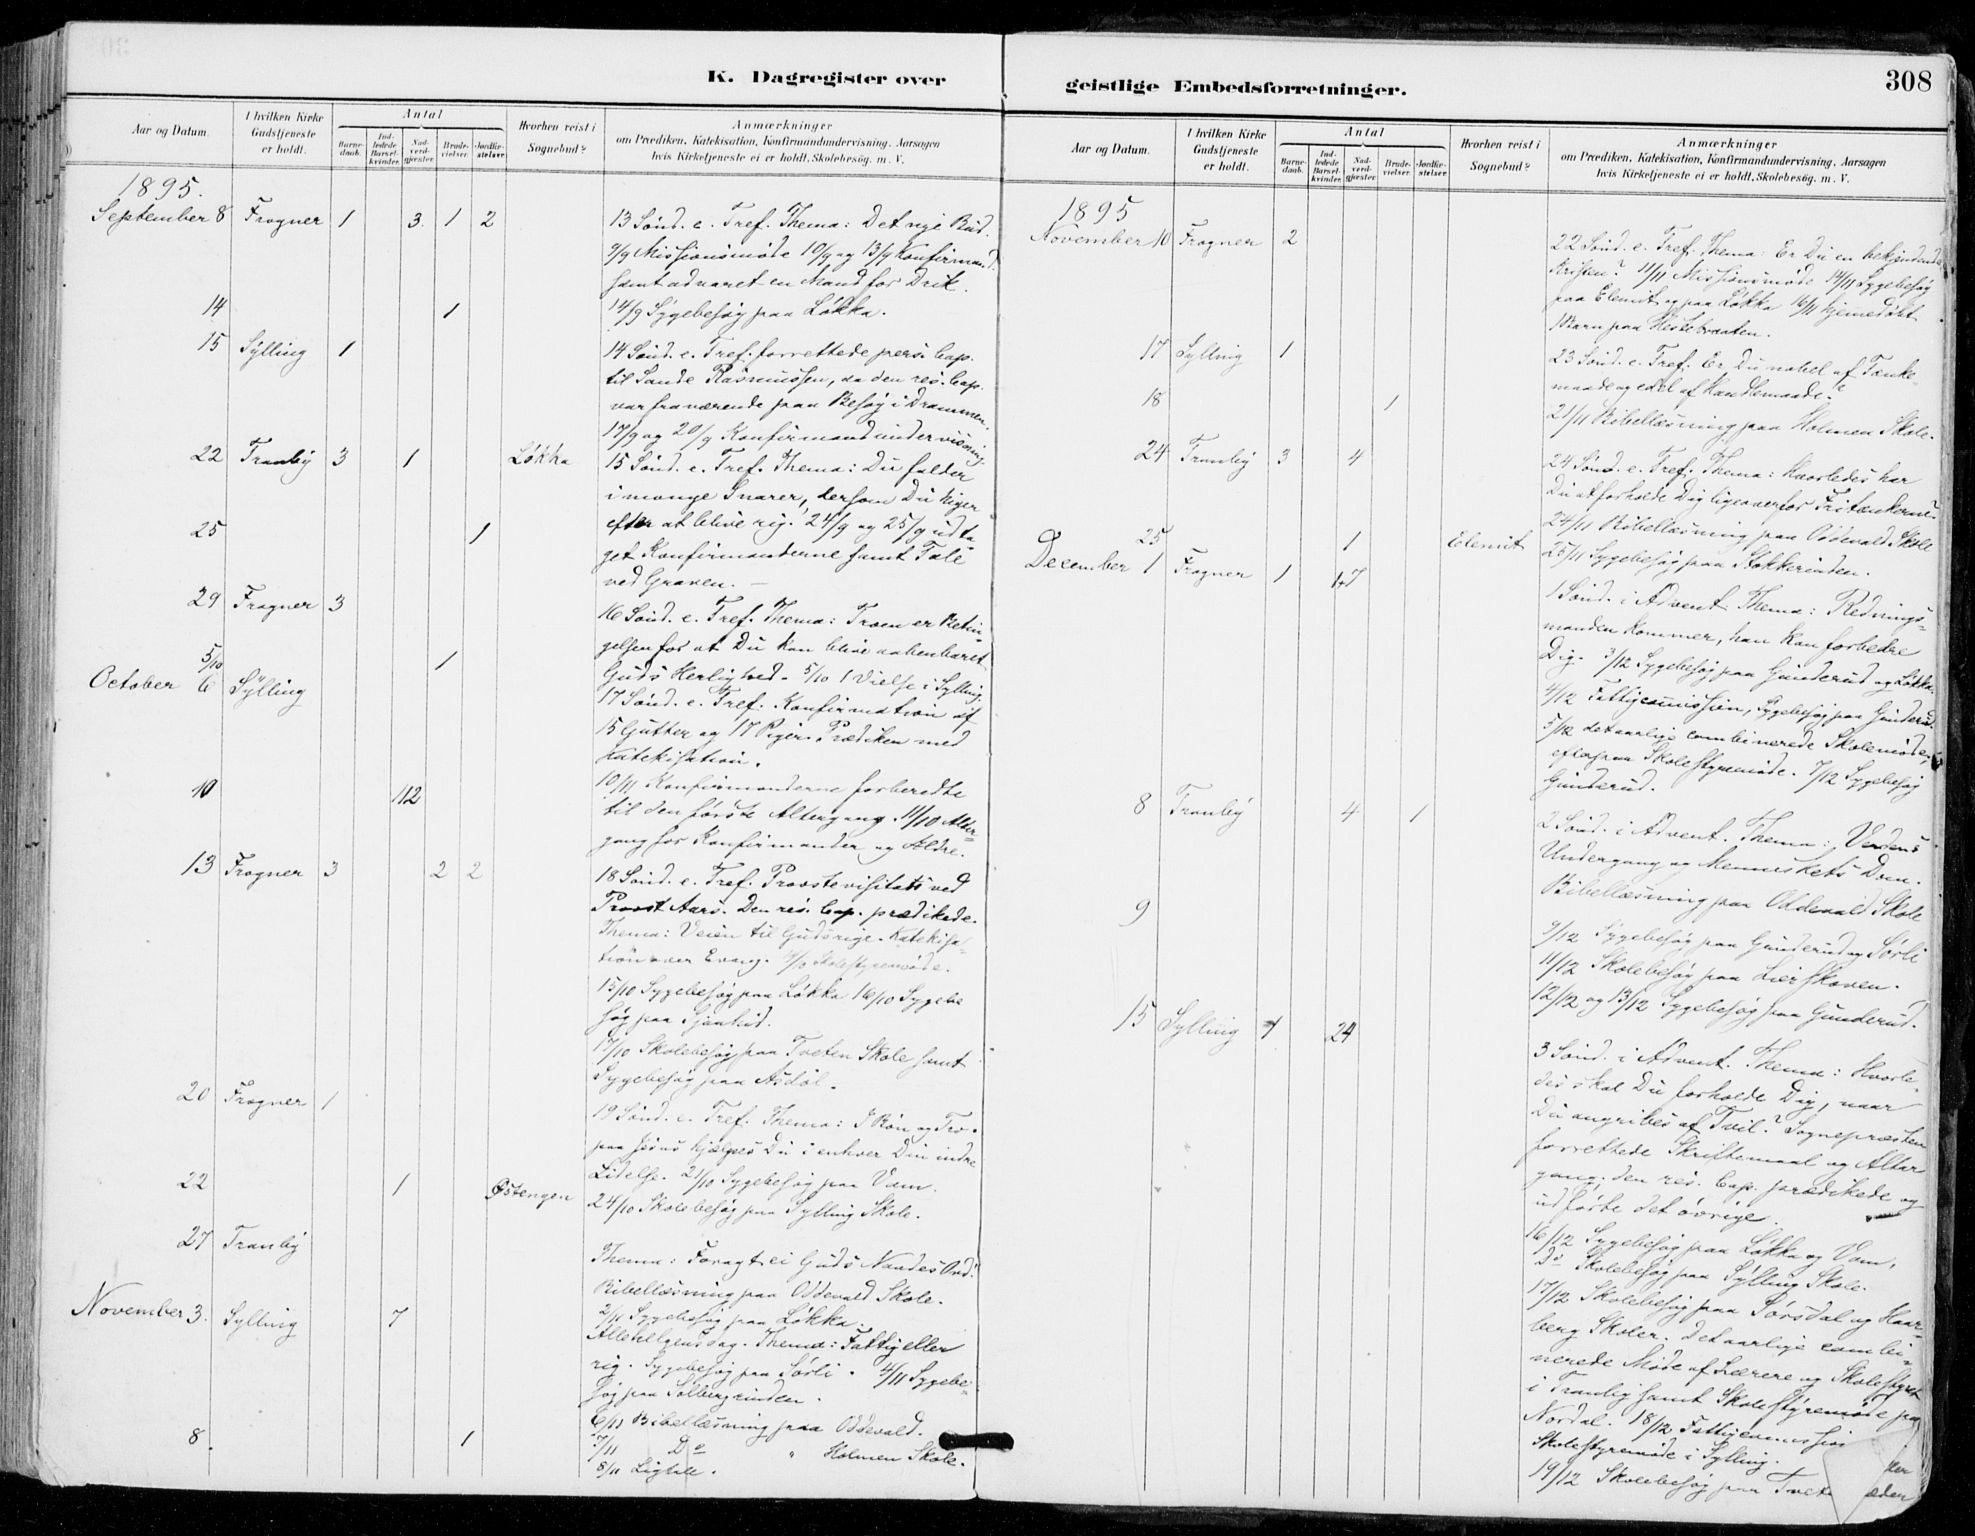 K. Dagregister over
Aar og Datum.
I hvilken Kirke Gudstjeneste er holdt.
Antal
Barne-daab.
Ind-ledede Barsel-kvinder.
Nad-verd-gjester.
Brude-vielser.
Jordfæ-stelser.
Hvorhen reist i Sognebud?
Anmærkninger
om Prædiken, Katekisation, Konfirmandundervisning, Aarsagen
hvis Kirketjeneste ei er holdt, Skolebesøg, m. V.
1895.
September 8 Frogner 1 3 1 2 13 Sønd. e. Tref. Thema: Det nye Bud.
9/9 Missionsmøde 10/9 og 13/9 Konfirmand.
samt advaret en Mand for Drik.
14 1 14/9 Sygebesøg paa Løkka.
15 Sylling 1 14 Sønd. e. Tref. forrettede pers. Cap.
til Sande Rasmussen, da den res. Cap.
var fraværende paa Besøg i Drammen.
17/9 og 20/9 Konfirmandundervisning.
22 Tranby 3 1 Løkka 15 Sønd. e. Tref. Thema: Du falder
i mange Snarer, dersom Du higer
efter at blive rig. 24/9 og 25/9 udta
25 1
get Konfirmanderne samt Tale
ved Graven. —
29 Frogner 3 16 Sønd. e. Tref. Thema: Troen er Betin-
gelsen for at Du kan blive aabenbaret
5/10 1 Guds Herlighed. 5/10 1 Vielse i Sylling.
October 6 Sylling 17 Sønd. e. Tref. Konfirmation af
15 Gutter og 17 Piger. Prædiken med
Katekisation.
10 112 10/11 Konfirmanderne forberedte
til den første Altergang. 11/10 Alter-
gang for Konfirmander og Ældre.
13 Frogner 3 2 2 18 Sønd. e. Tref. Provstevisitats ved
Provst Aars. Den res. Cap. prædikede.
Thema: Veien til Guds rige. Katekisa-
tion over Evang. Skolestyremøde.
15/10 Sygebesøg paa Løkka 16/10 Sygebe
søg paa
17/10 Skolebesøg paa Tveten Skole samt
Sygebesøg paa Asdøl.
20 Frogner 1 19 Sønd. e. Tref. Thema: I Bøn og Tro
paa Jesus hjælpes Du i enhver Din indre
Lidelse. 21/10 Sygebesøg paa Vam.
22 1 Østengen
24/10 Skolebesøg paa Sylling Skole.
27 Tranby Thema: Foragt ei Guds Naades Ord.
Bibellæsning paa Oddevald Skole.
2/11 Sygebesøg paa Løkka.
November 3. Sylling 7 Allehelgensdag. Thema: Fattig eller
rig. Sygebesøg paa Sørli. 4/11 Sygebe-
søg paa Solbergeinden.
6/11 Bibellæsning paa Oddevald.
8. 1 7/11 Do " Holmen Skole.
8/11 Ligtale.
geistlige Embedsforretninger.
308
Aar og Datum.
I hvilken Kirke Gudstjeneste er holdt.
Antal
Barne-daab.
Ind-ledede Barsel-kvinder.
Nad-verd-gjester.
Brude-vielser.
Jordfæ-stelser.
Hvorhen reist i Sognebud?
Anmærkninger
om Prædiken, Katekisation, Konfirmandundervisning, Aarsagen
hvis Kirketjeneste ei er holdt, Skolebesøg, m. V.
1895
November 10 Frogner 2 22 Sønd. e. Tref. Thema: Er Du en bekjendende
Kristen? 11/11 Missionsmøde 14/11 Sygebesøg
paa Elemit og paa Løkka 16/11 hjemedøbt
1 Barn paa Hestebraaten.
17 Sylling 1 23 Sønd. e. Tref. Er Du nobel af Tænke-
maade og edel af Handlemaade?
18 1
21/11 Bibellæsning paa Holmen Skole.
24 Tranby 3 4 24 Sønd. e. Tref. Thema: Hvorledes har
Du at forholde Dig ligeoverfor Fritænkerne?
24/11 Bibellæsning paa Oddevald Skole
25 1 Elemit 25/11 Sygebesøg paa Stokkerinden.
December 1 Frogner 1 17 1 Sønd. i Advent. Thema: Rednings-
manden kommer, han kan forbedre
Dig. 3/12 Sygebesøg paa Gunderud og Løkka.
4/12 Fattigcommission, Sygebesøg paa Gunderud.
5/12 det aarlige combinerede Skolemøde,
efterpaa Skolestyremøde. 7/12 Sygebesøg
Gunderud.
8 Tranby 4 1 2 Sønd. i Advent. Thema: Verdens
Undergang og Menneskets Dom.
Bibellæsning paa Oddevald Skole
9 9/12 Sygebesøg paa Gunderud og Sørli
11/12 Skolebesøg paa Lierskoven.
12/12 og 13/12 Sygebesøg paa Gunderud.
15 Sylling 1 24 3 Sønd. i Advent. Thema: Hvorle-
des skal Du forholde Dig, naar
Du angribes af Tvil? Sognepræsten
forrettede Skriftemaal og Alter
gang. den res. Cap. prædikede og
udførte det øvrige.
16/12 Sygebesøg paa Løkka og Vam,
Do Skolebesøg paa Sylling Skole.
17/12 Skolebesøg paa Sørsdal og Haar-
berg Skoler. Det aarlige combi-
nerede Møde af Lærere og Skolestyret
i Tranby samt Skolestyremøde paa
Nordal. 18/12 Fattigcommission
Skolestyremøde i Sylling.
19/12 Skolebesøg paa Tvet